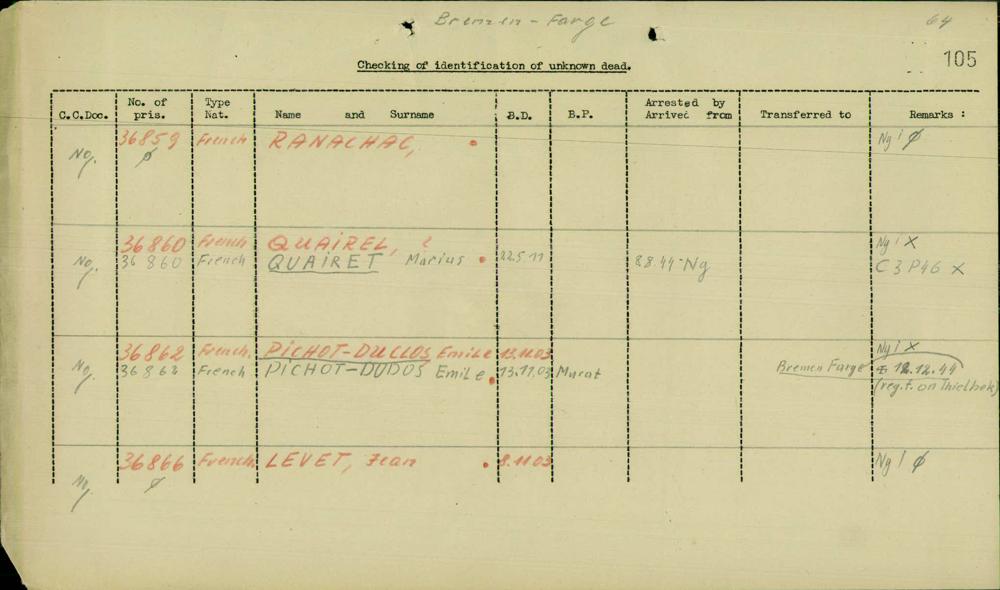 Bremen - Farge 64
105
Checking of identification of unknown dead.
C.C.Doc. No. of pris. Type Nat. Name and Surname B.D. B.P. Arrested by Arrived from Transferred to Remarks :
Ng. 36859 French RANACHAC, Ng i ∅
∅
36860 French QUAIREL, ? Ng i X
Ng. 36860 French QUAIRET Marius 22.5.11 28.8.44 Ng C 3 P46 X
36862 French. PICHOT-DUCLOS Emile 13.11.03 Ng i X
Ng. 36862 French PICHOT-DUDOS Emile 13.11.03 Murat Bremen Farge 12.12.44
(reg. f. on Thielbek)
36866 French. LEVET, Jean 8.11.03 Ng ! ∅
Ng. ∅